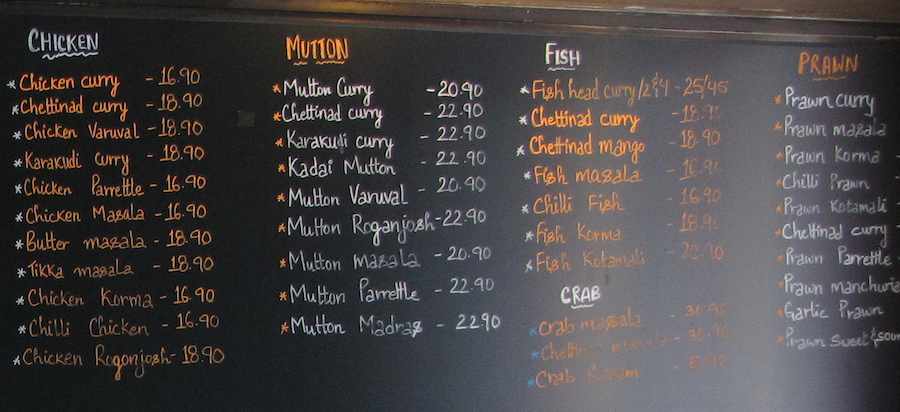 CHICKEN
*Chicken curry - 16.90
*Chettinad curry - 18.90
*Chicken Varuval - 18.90
*Karakudi curry - 18.90
*Chicken Parrettle - 16.90
*Chicken Masala - 16.90
*Butter masala - 18.90
*Tikka masala - 18.90
*Chicken Korma - 16.90
*Chilli Chicken - 16.90
*Chicken Roganjosh - 18.90
MUTTON
*Mutton Curry - 20.90
*Chettinad curry - 22.90
*Karakudi curry - 22.90
*Kadai Mutton - 22.90
*Mutton Varuval - 20.90
*Mutton Roganjosh - 22.90
*Mutton masala - 20.90
*Mutton Parrettle - 22.90
*Mutton Madras - 22.90
FISH
*Fish head curry/2&4 - 25/45
*Chettinad curry - 18.90
*Chettinad mango - 18.90
*Fish masala - 16.90
*Chilli Fish - 16.90
*Fish Korma - 18.90
*Fish Kotamali - 22.90
CRAB
*Crab massala
*Chettinad
*Crab
PRAWN
*Prawn curry
*Prawn masala
*Prawn Korma -
*Chilli Prawn -
*Prawn Kotamali -
*Chettinad curry -
*Prawn Parrettle -
*Prawn manchuria
*Garlic Prawn
*Prawn sweet & sour